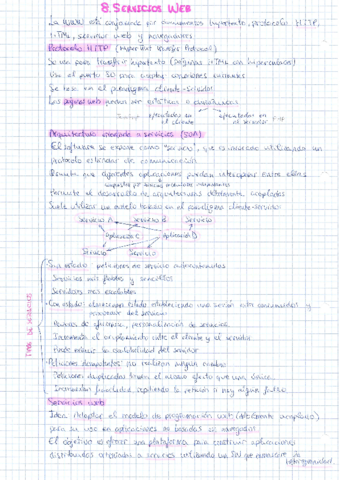 8. SERVICIOS WEB
La WWW está conformada por documentos hipertexto, protocolo HTTP,
HTML, servidor web y navegadores
Protocolo HTTP (Hypertext Transfer Protocol)
Se usa para transferir hipertexto (páginas HTML con hipervínculos)
Usa el puerto 80 para aceptar conexiones entrantes
Se basa en el paradigma cliente-servidor
Las páginas web pueden ser estáticas o dinámicas
ejecutadas en el cliente
ejecutadas en el servidor
Arquitectura orientada a servicios (SOA)
El software se expone como "servicio", que es invocado utilizando un
protocolo estándar de comunicación
Permite que diferentes aplicaciones puedan interoperar entre ellas
Permite el desarrollo de arquitecturas débilmente acopladas
Suele utilizar un modelo basado en el paradigma cliente-servidor
Servicio A Servicio B Servicio
Aplicación C Aplicación D
Servicio Servicio
TIPOS DE SERVICIOS
Sin estado: peticiones al servicio autocontenidas
Servicios más fiables y sencillos
Servidores más escalables
Con estado:
servidor del servicio
Razones de eficiencia, personalización de servicio
Incrementa el acoplamiento entre el cliente y el servidor
Puede reducir la escalabilidad del servidor
Peticiones idempotentes: no realizan ningún cambio
Peticiones duplicadas tienen el mismo efecto que una única
repitiendo la petición si hay algún fallo
Servicios web
Idea: Adaptar el modelo de programación web (débilmente acoplado)
para su uso en aplicaciones no basadas en navegador
El objetivo es ofrecer una plataforma para construir aplicaciones
distribuidas utilizando un SW que
heterogeneidad